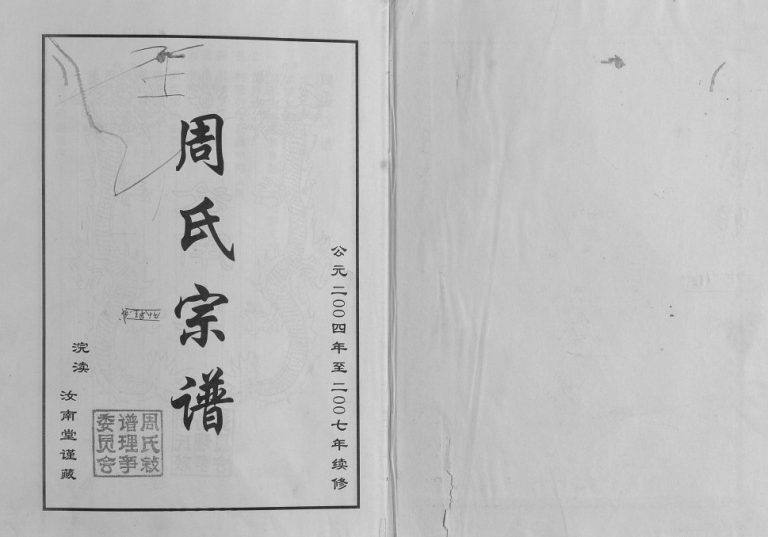 公元二〇〇四年至二〇〇七年续修
周氏宗谱
浣渎
汝南堂谨藏
周氏
谱理事
委员会